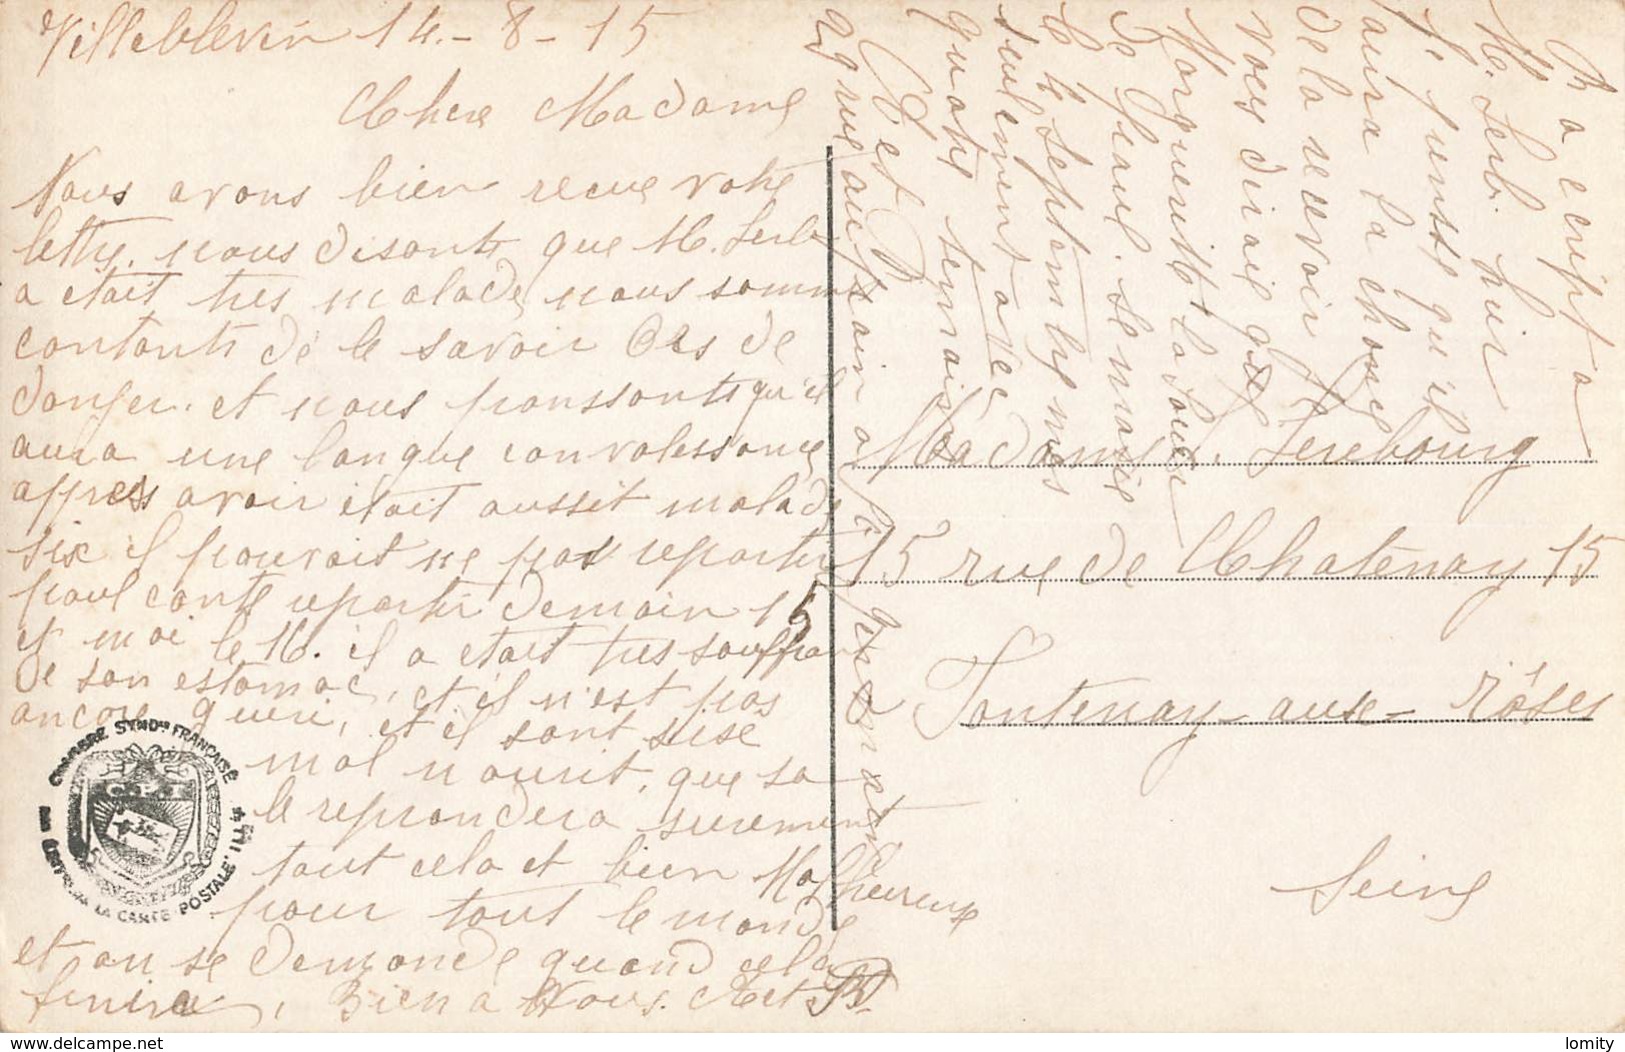 Villeblevin 14 - 8 - 15
Chere Madame
Nous avons bien recue votre
lettre. nous disants que M. Serb
a etait tres malade, nous somm
contants de le savoir Ors de
danger. et nous panssonts qu'il
aura une langue convalessance
appress avoir était aussit malade
six il pouvait ne pas repartir
paul conte repartir demain 15
et moi le 16. il a etait tres souffran
de son estomac, et il n'est pas
ancore gueri, et il sont sise
mal nourit, que sa
le reprandera surement
tout cela et bien Malheureuse
pour tout le monde
et on se demande quand cela
finira, Bien a Vous. A et B
B a ecript a
M. Serb. hier
Je pense qu'il
aura la chance
de la recevoir
vous dirait que
Marguerite la soeur
de Paul. se marie
le 4 septembre
seulement avec
quatre temoins
A et B
29 rue
Madame Serebourg
15 rue de Chatenay 15
Fontenay-aux-roses
Seine
CHAMBRE SYNDle FRANÇAISE
C.P.I
LA CARTE POSTALE ILLée
lomity
lomity.delcampe.net